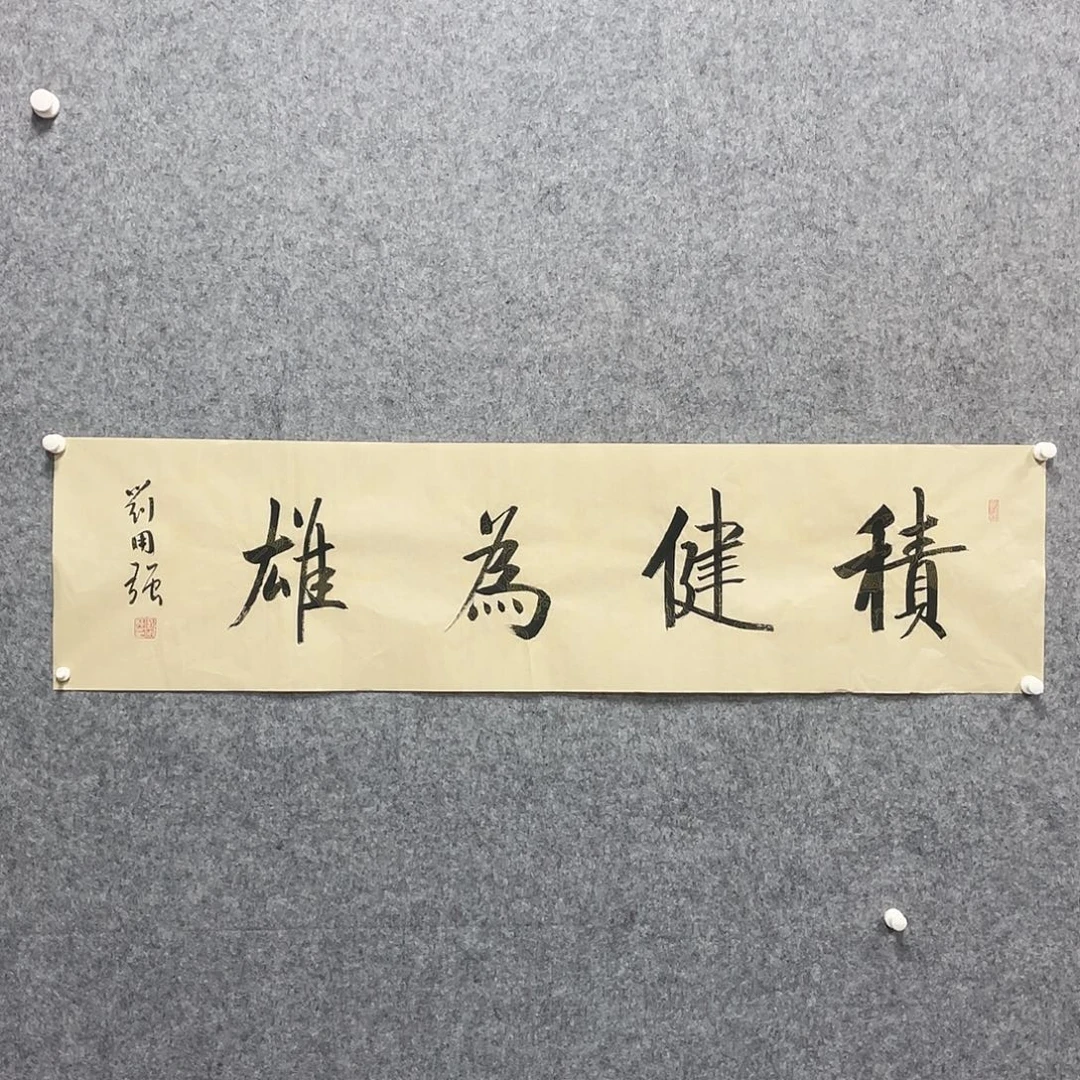 積健為雄
劉用強